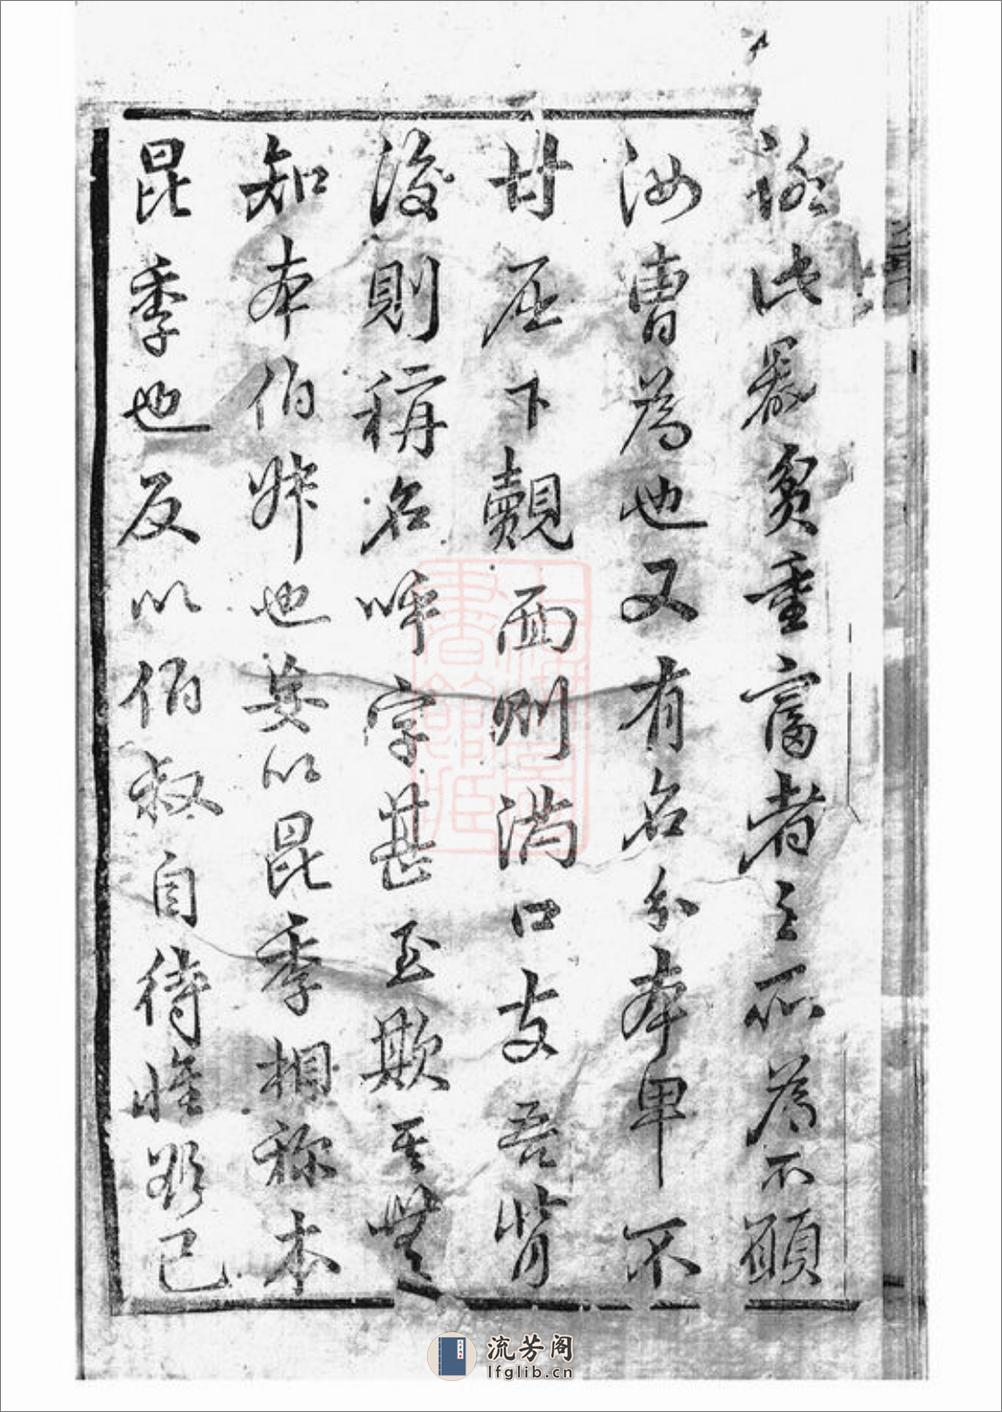 此器貧重富者之所為不願
汝曹為也又有名分本卑不
甘居下覿面則滿口支吾背
後則稱名呼字甚至欺其無
知本伯姊也妄以昆季相称本
昆季也反以伯叔自待惟欲己
流芳阁
lfglib.cn